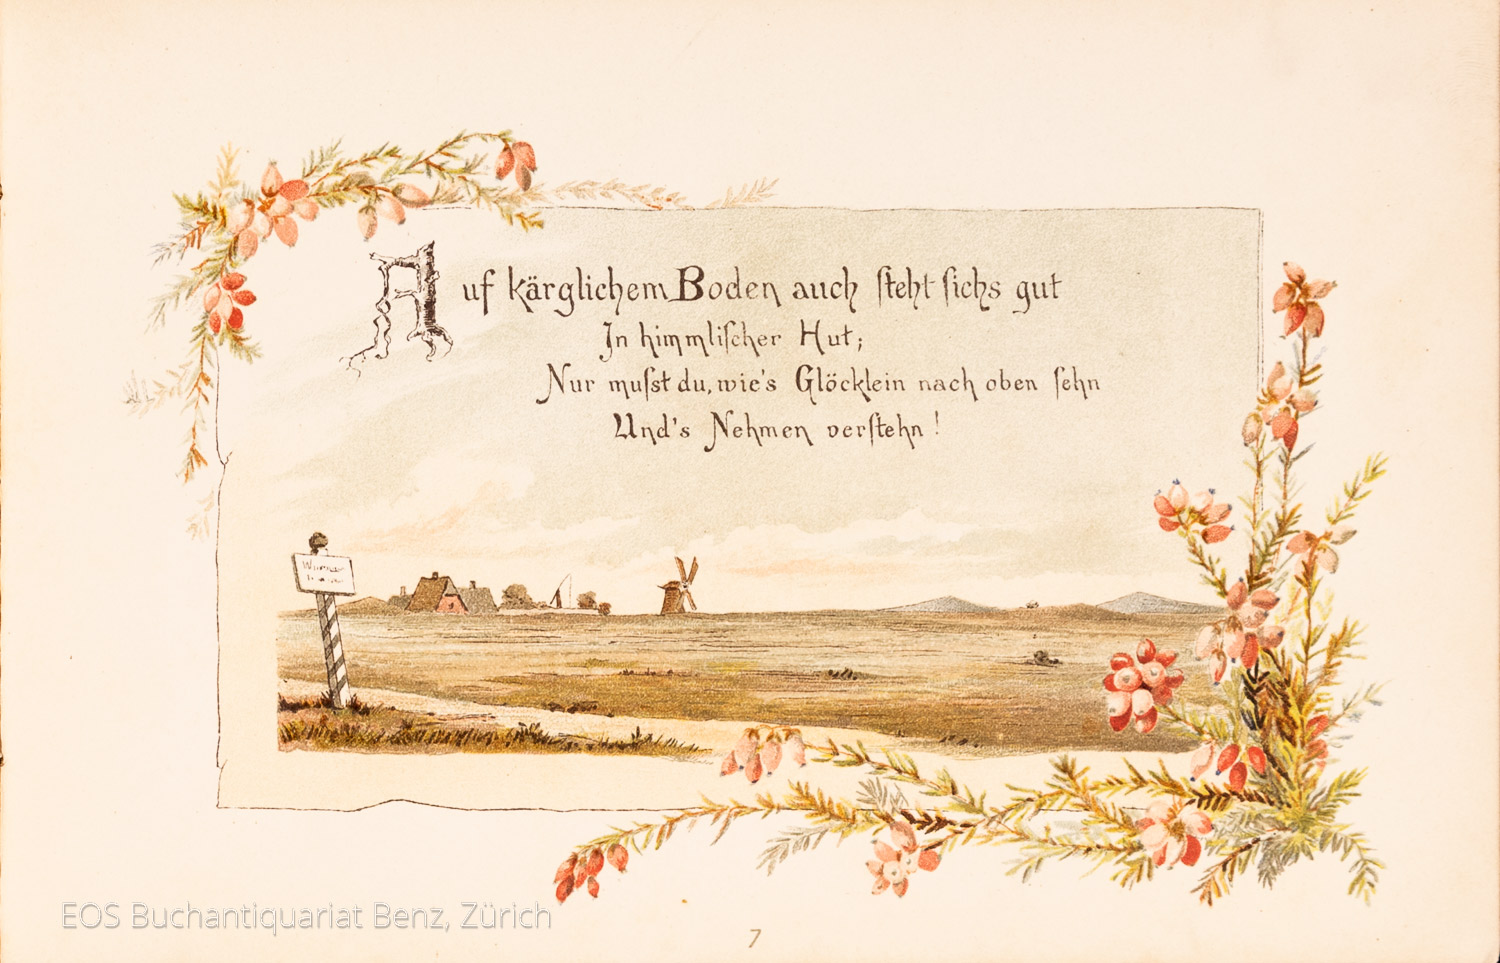 Auf kärglichem Boden auch ſteht ſichs gut
In himmliſcher Hut;
Nur muſst du, wie's Glöcklein nach oben ſehn
Und's Nehmen verſtehn!
EOS Buchantiquariat Benz, Zürich
7